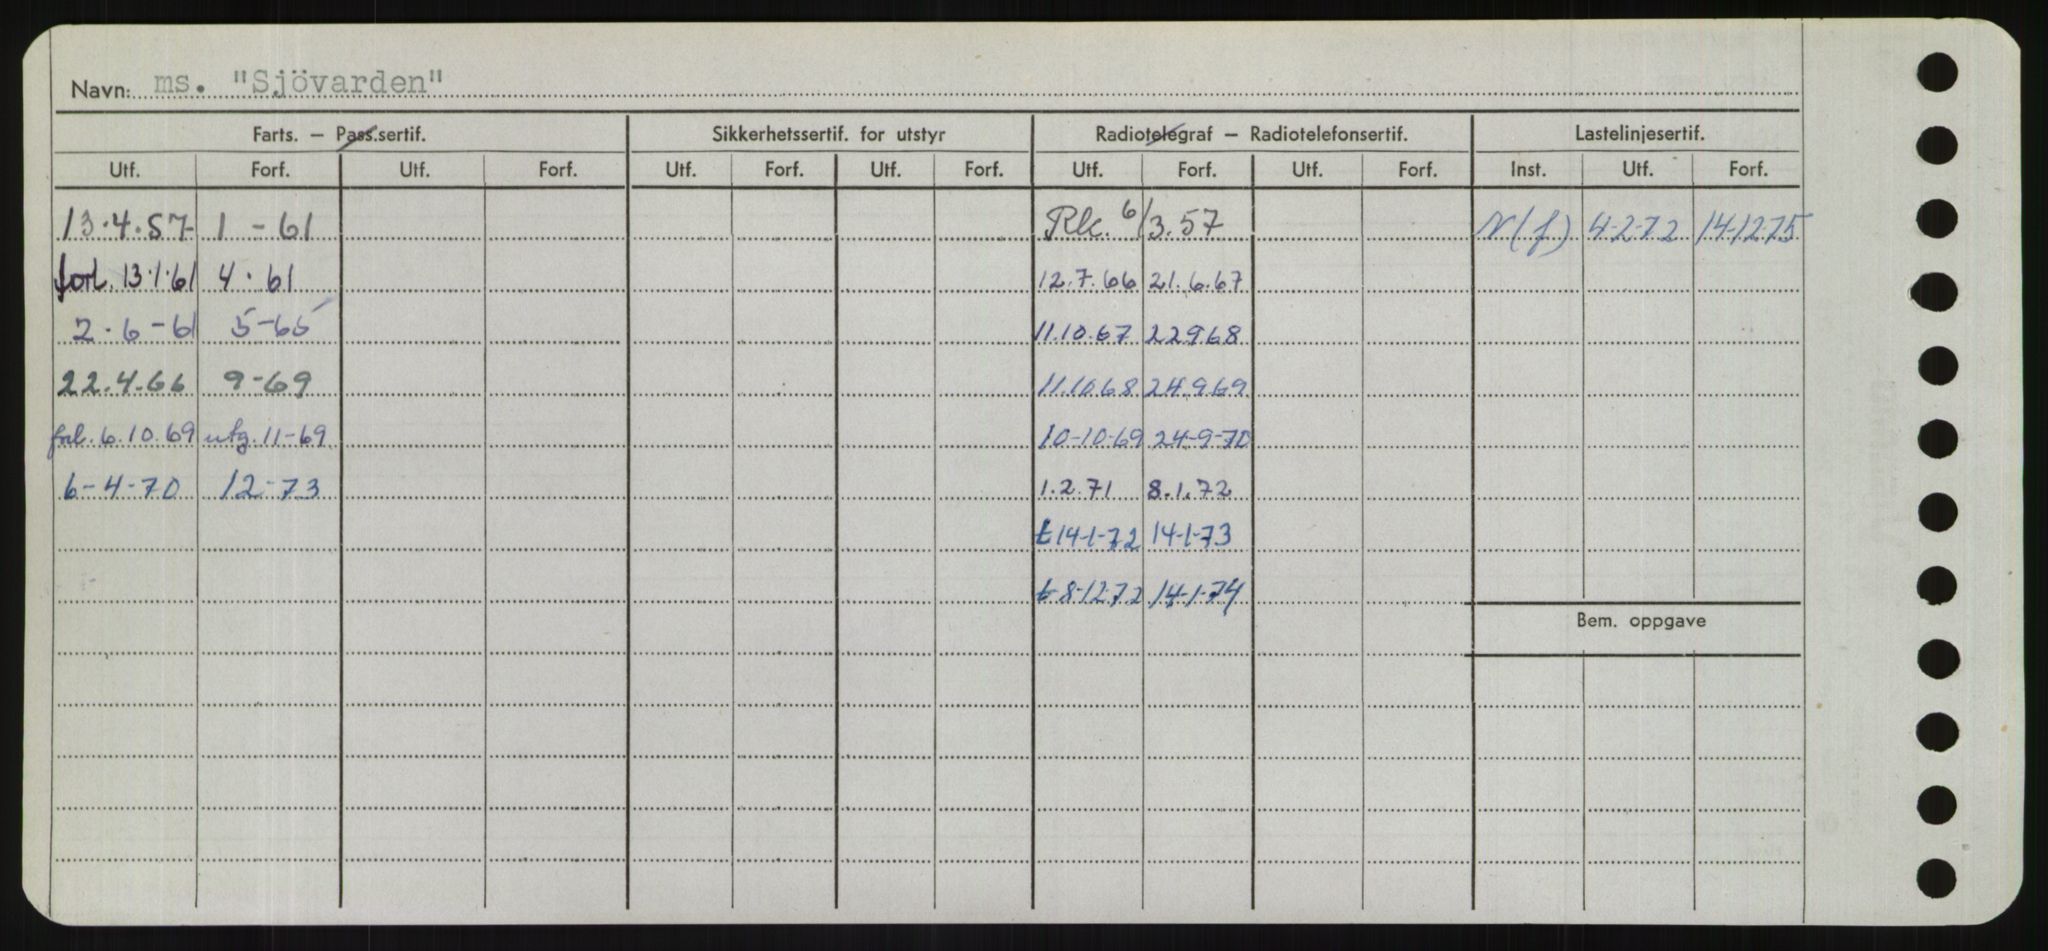 Navn: ms. "Sjövarden"
Farts. – Pass.sertif. Sikkerhetssertif. for utstyr Radiotelegraf – Radiotelefonsertif. Lastelinjesertif.
Utf. Forf. Utf. Forf. Utf. Forf. Utf. Forf. Utf. Forf. Utf. Forf. Inst. Utf. Forf.
13.4.57 1 - 61 Rk. 6/3.57 N(f) 4-2-72 14-12-75
forl. 13.1.61 4.61 12.7.66 21.6.67
2.6-61 5-65 11.10.67 22.9.68
22.4.66 9-69 11.10.68 24.9.69
forl. 6.10.69 utg. 11-69 10-10-69 24-9-70
6-4-70 12-73 1.2.71 8.1.72
t 14-1-72 14-1-73
t 8-12-72 14-1-74
Bem. oppgave